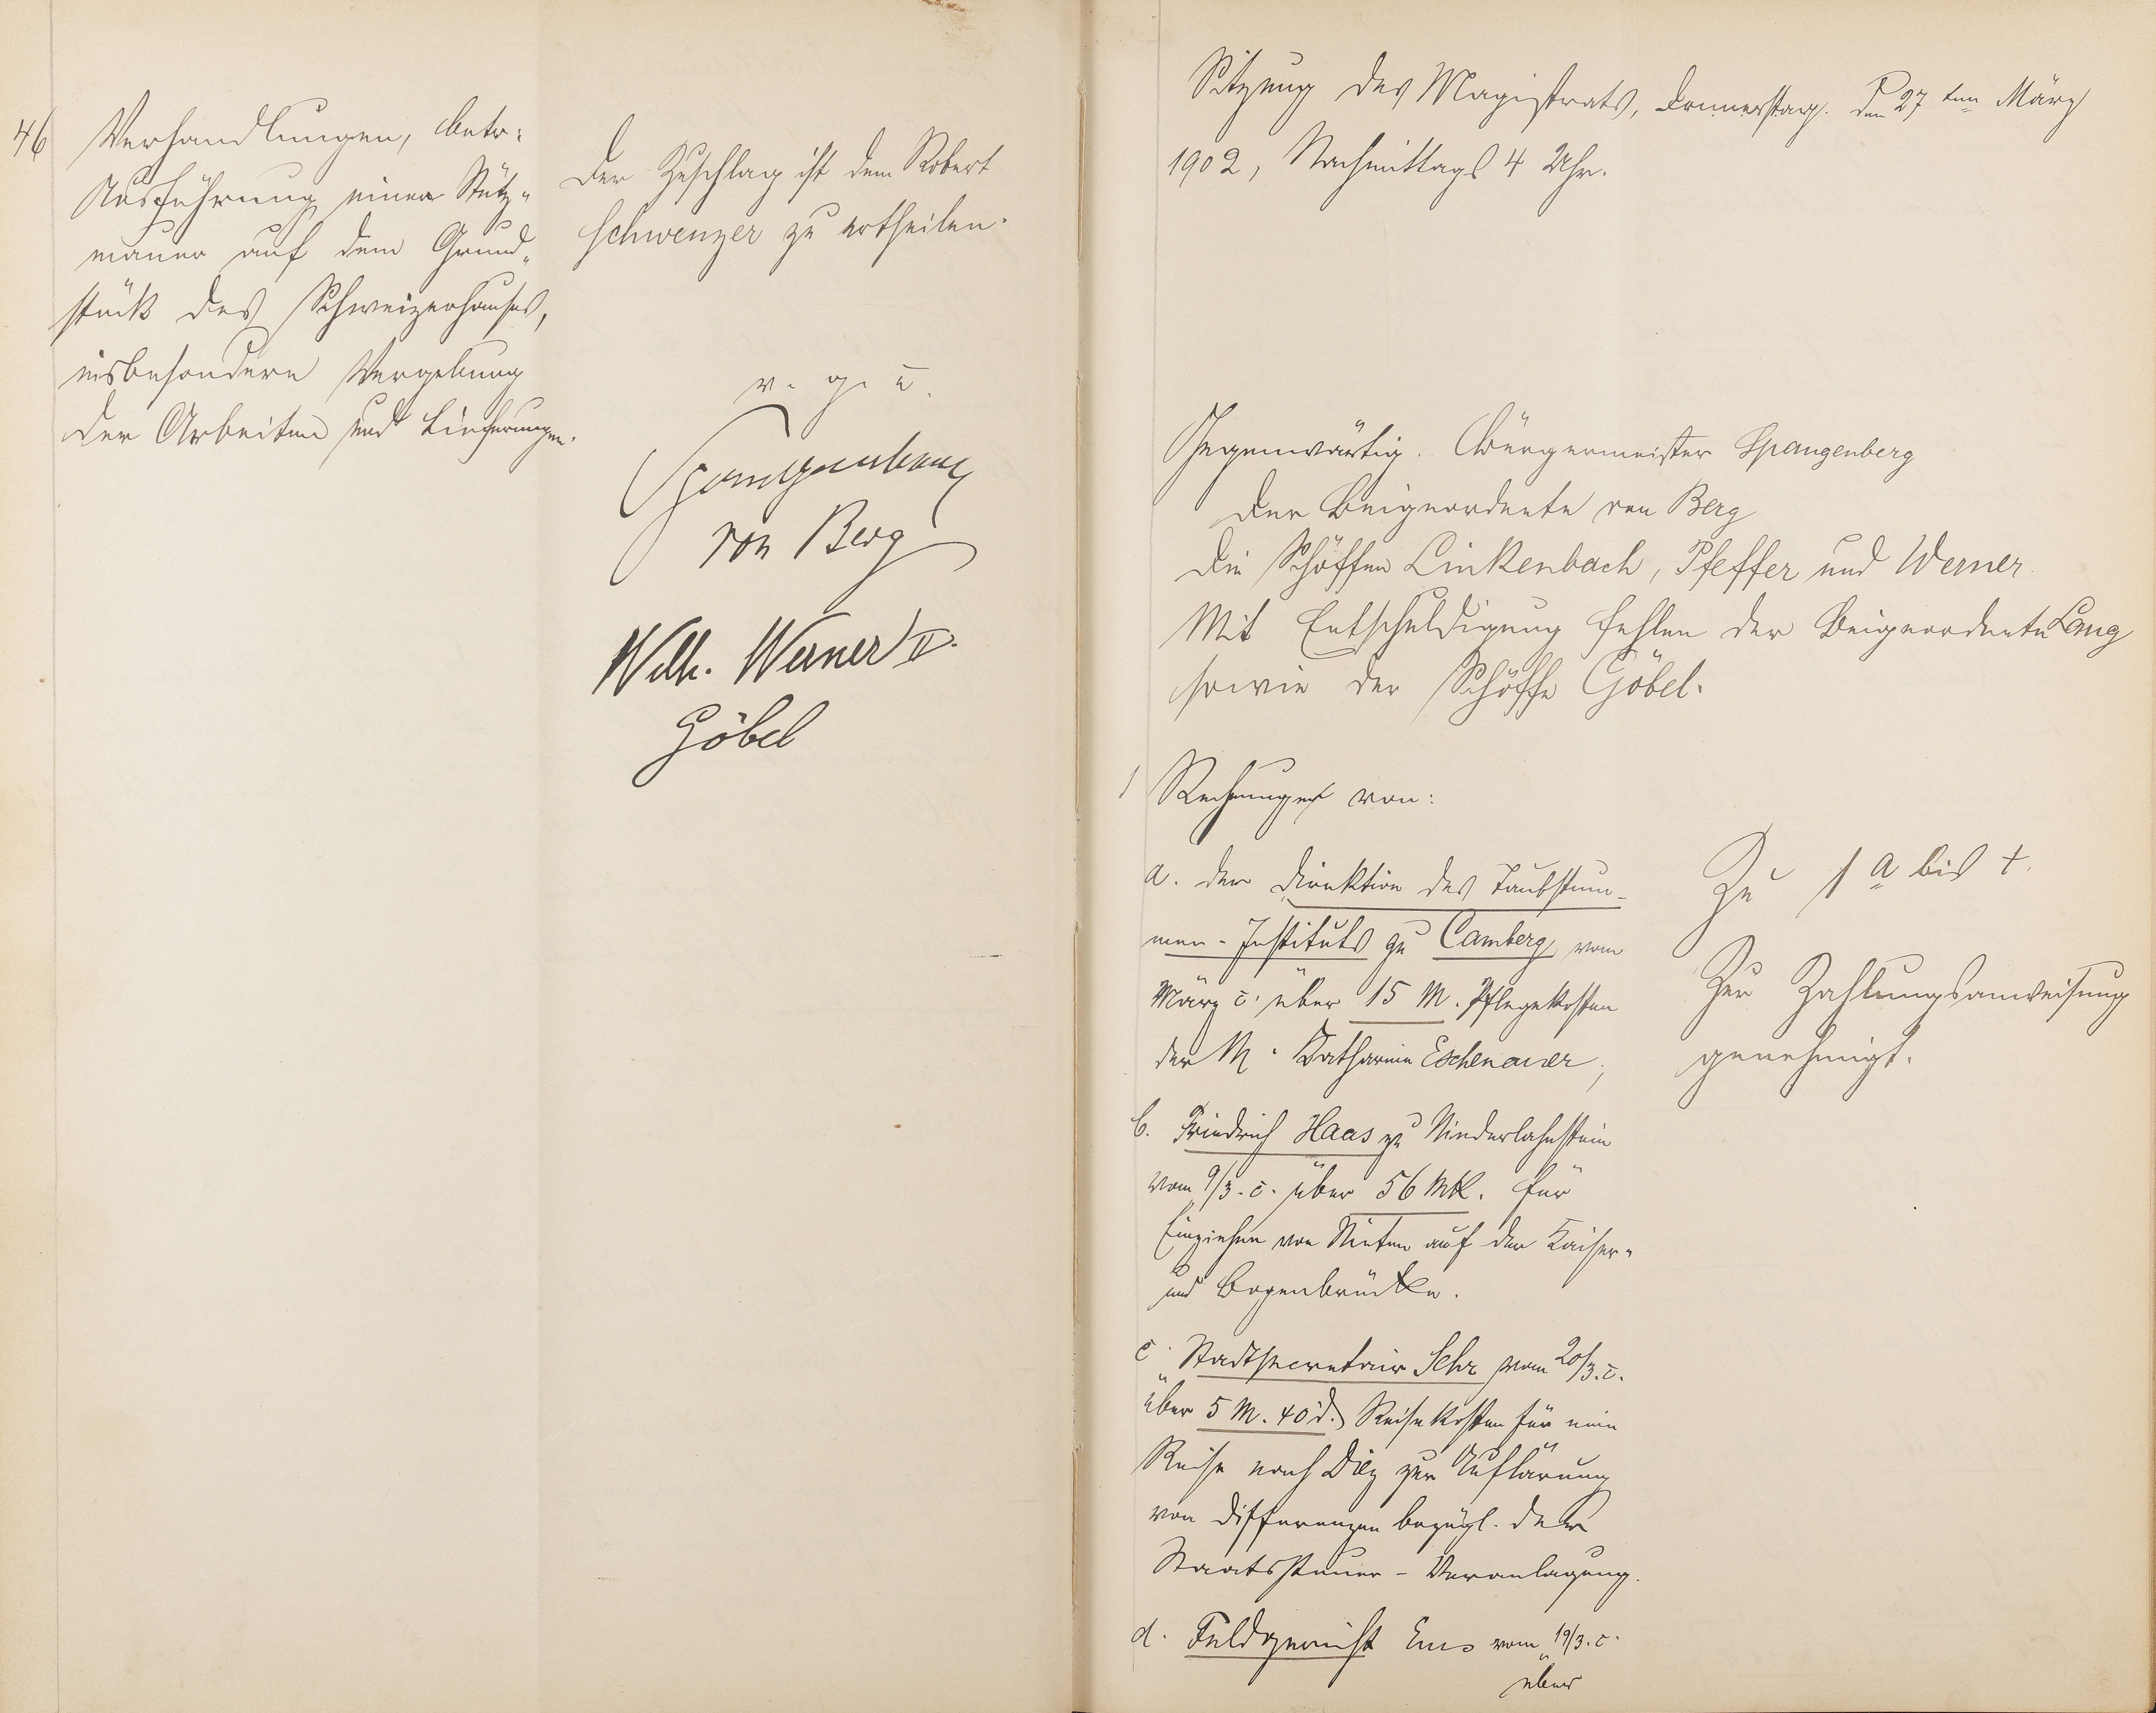 46 Verhandlungen, betr:
Ausführung einer Stütz-
mauer auf dem Grund-
stück des Schweizerhauses,
insbesondere Vergebung
der Arbeiten und Lieferungen.
Der Zuschlag ist dem Robert
Schwenzer zu ertheilen.
v. g. u.
Spangenberg
von Berg
Wilh. Werner II.
Göbel
Sitzung des Magistrats, Donnerstag. den 27ten März
1902, Nachmittags 4 Uhr.
Gegenwärtig. Bürgermeister Spangenberg
Der Beigeordnete von Berg
Die Schöffen Linkenbach, Pfeffer und Werner
Mit Entschuldigung fehlen der Beigeordnete Lang
sowie der Schöffe Göbel.
1 Rechnungen von:
a. der Direktion des Taubstum-
men-Instituts zu Camberg vom
März c. über 15 M. Pflegekosten
der M. Katharina Eschenauer,
b. Friedrich Haas zu Niederlahnstein
vom 9/3. c. über 56 Mk. für
Einziehen von Nieten auf der Kaiser-
und Bogenbrücke.
c. Stadtsecretair Sehr vom 20/3. c.
über 5 M. 40 d. Reisekosten für eine
Reise nach Diez zur Aufklärung
von Differenzen bezügl. der
Staatssteuer-Veranlagung.
d. Feldgericht Ems vom 19/3. c.
über
Zu 1 a bis t.
Zur Zahlungsanweisung
genehmigt.